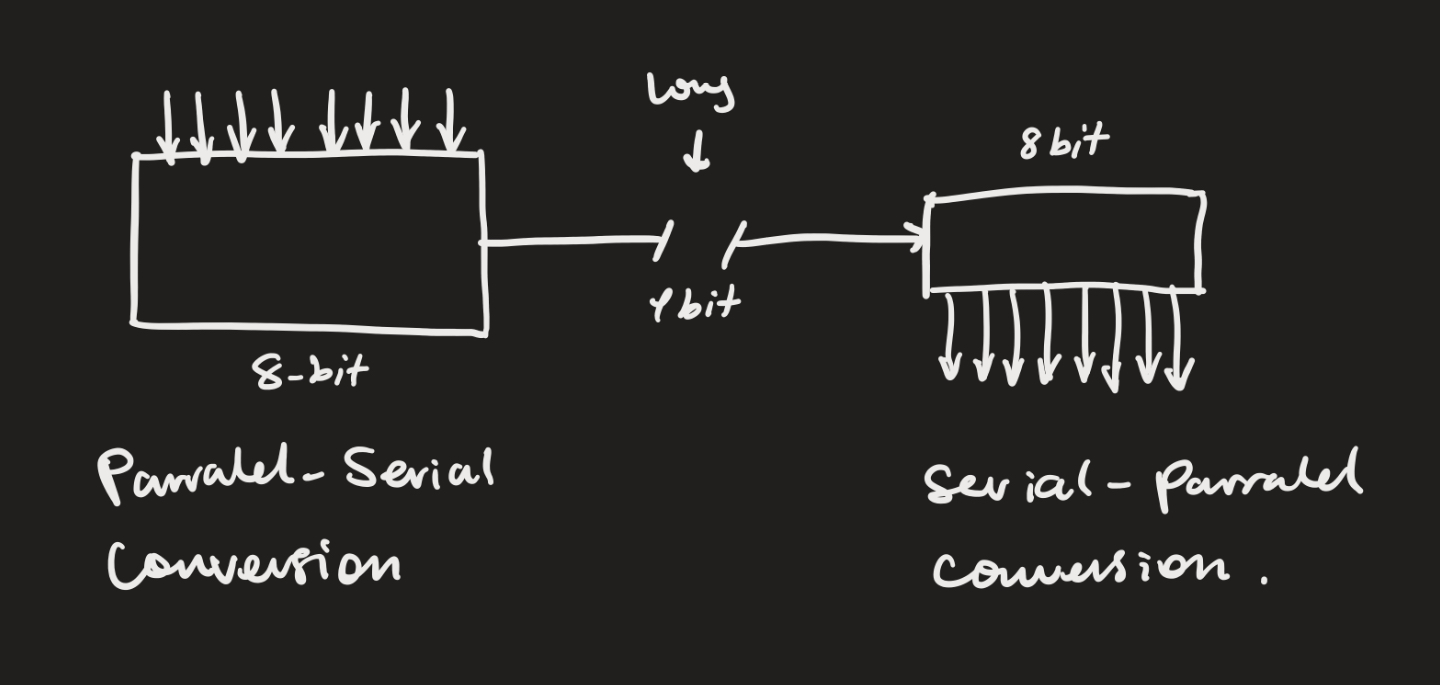 Long
8 bit
1 bit
8-bit
Parralel - Serial
Conversion
Serial - Parralel
Conversion.